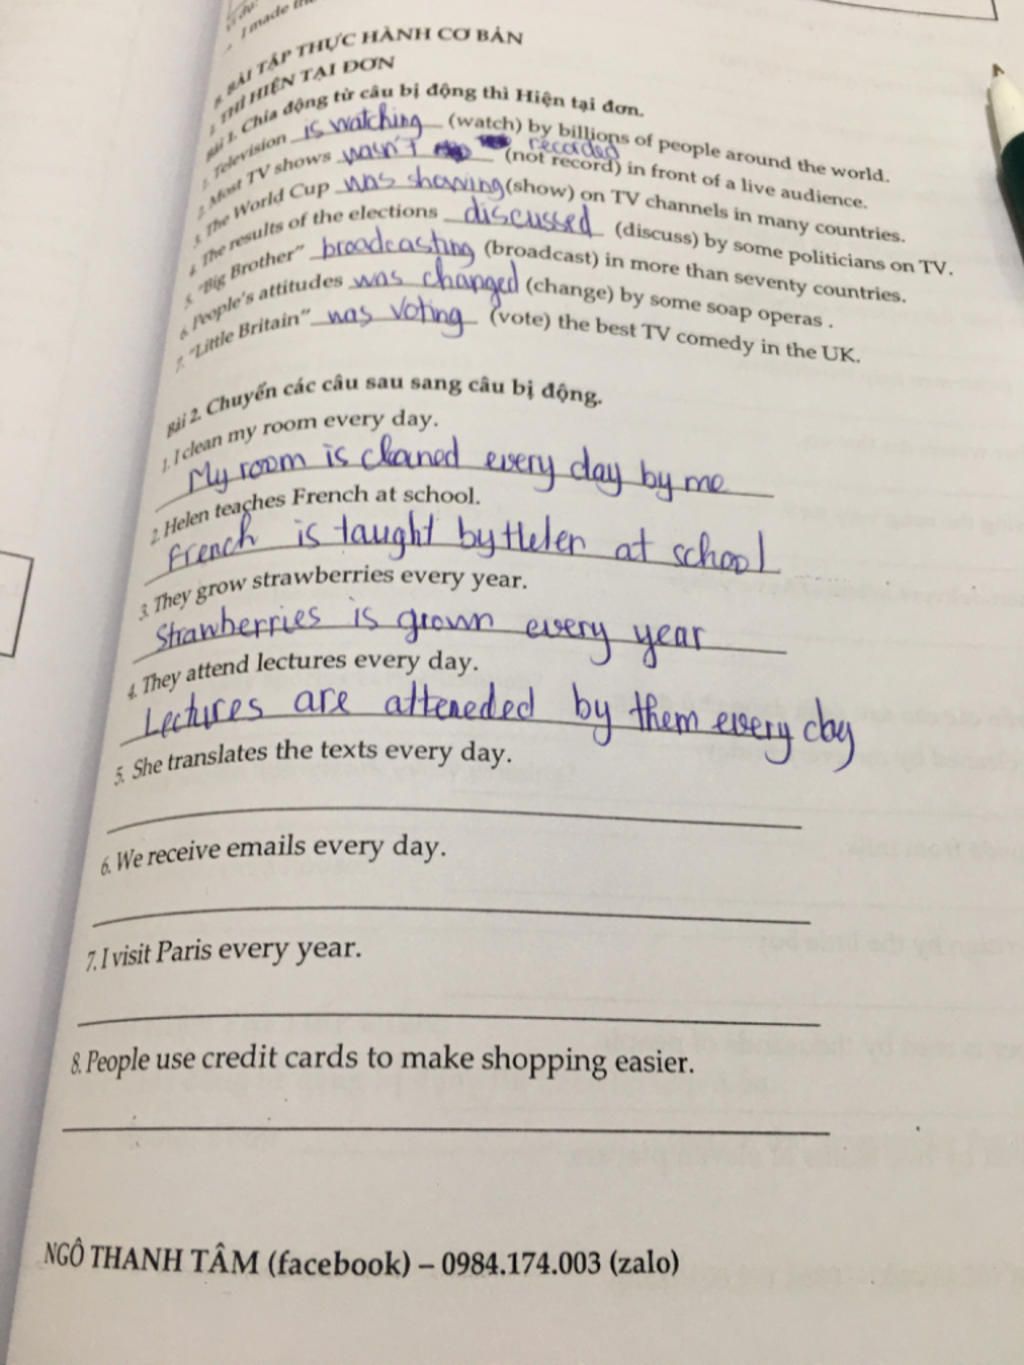 ví dụ:
I made the
B. BÀI TẬP THỰC HÀNH CƠ BẢN
I. THÌ HIỆN TẠI ĐƠN
Bài 1. Chia động từ câu bị động thì Hiện tại đơn.
1. Television is watching (watch) by billions of people around the world.
2. Most TV shows wasn't recorded (not record) in front of a live audience.
3. The World Cup was showing (show) on TV channels in many countries.
4. The results of the elections discussed (discuss) by some politicians on TV.
5. "Big Brother" broadcasting (broadcast) in more than seventy countries.
6. People's attitudes was changed (change) by some soap operas .
7. "Little Britain" was voting (vote) the best TV comedy in the UK.
Bài 2. Chuyển các câu sau sang câu bị động.
1. I clean my room every day.
My room is cleaned every day by me
2. Helen teaches French at school.
French is taught by Helen at school
3. They grow strawberries every year.
Strawberries is grown every year
4. They attend lectures every day.
Lectures are atteneded by them every day
5. She translates the texts every day.
6. We receive emails every day.
7. I visit Paris every year.
8. People use credit cards to make shopping easier.
NGÔ THANH TÂM (facebook) – 0984.174.003 (zalo)